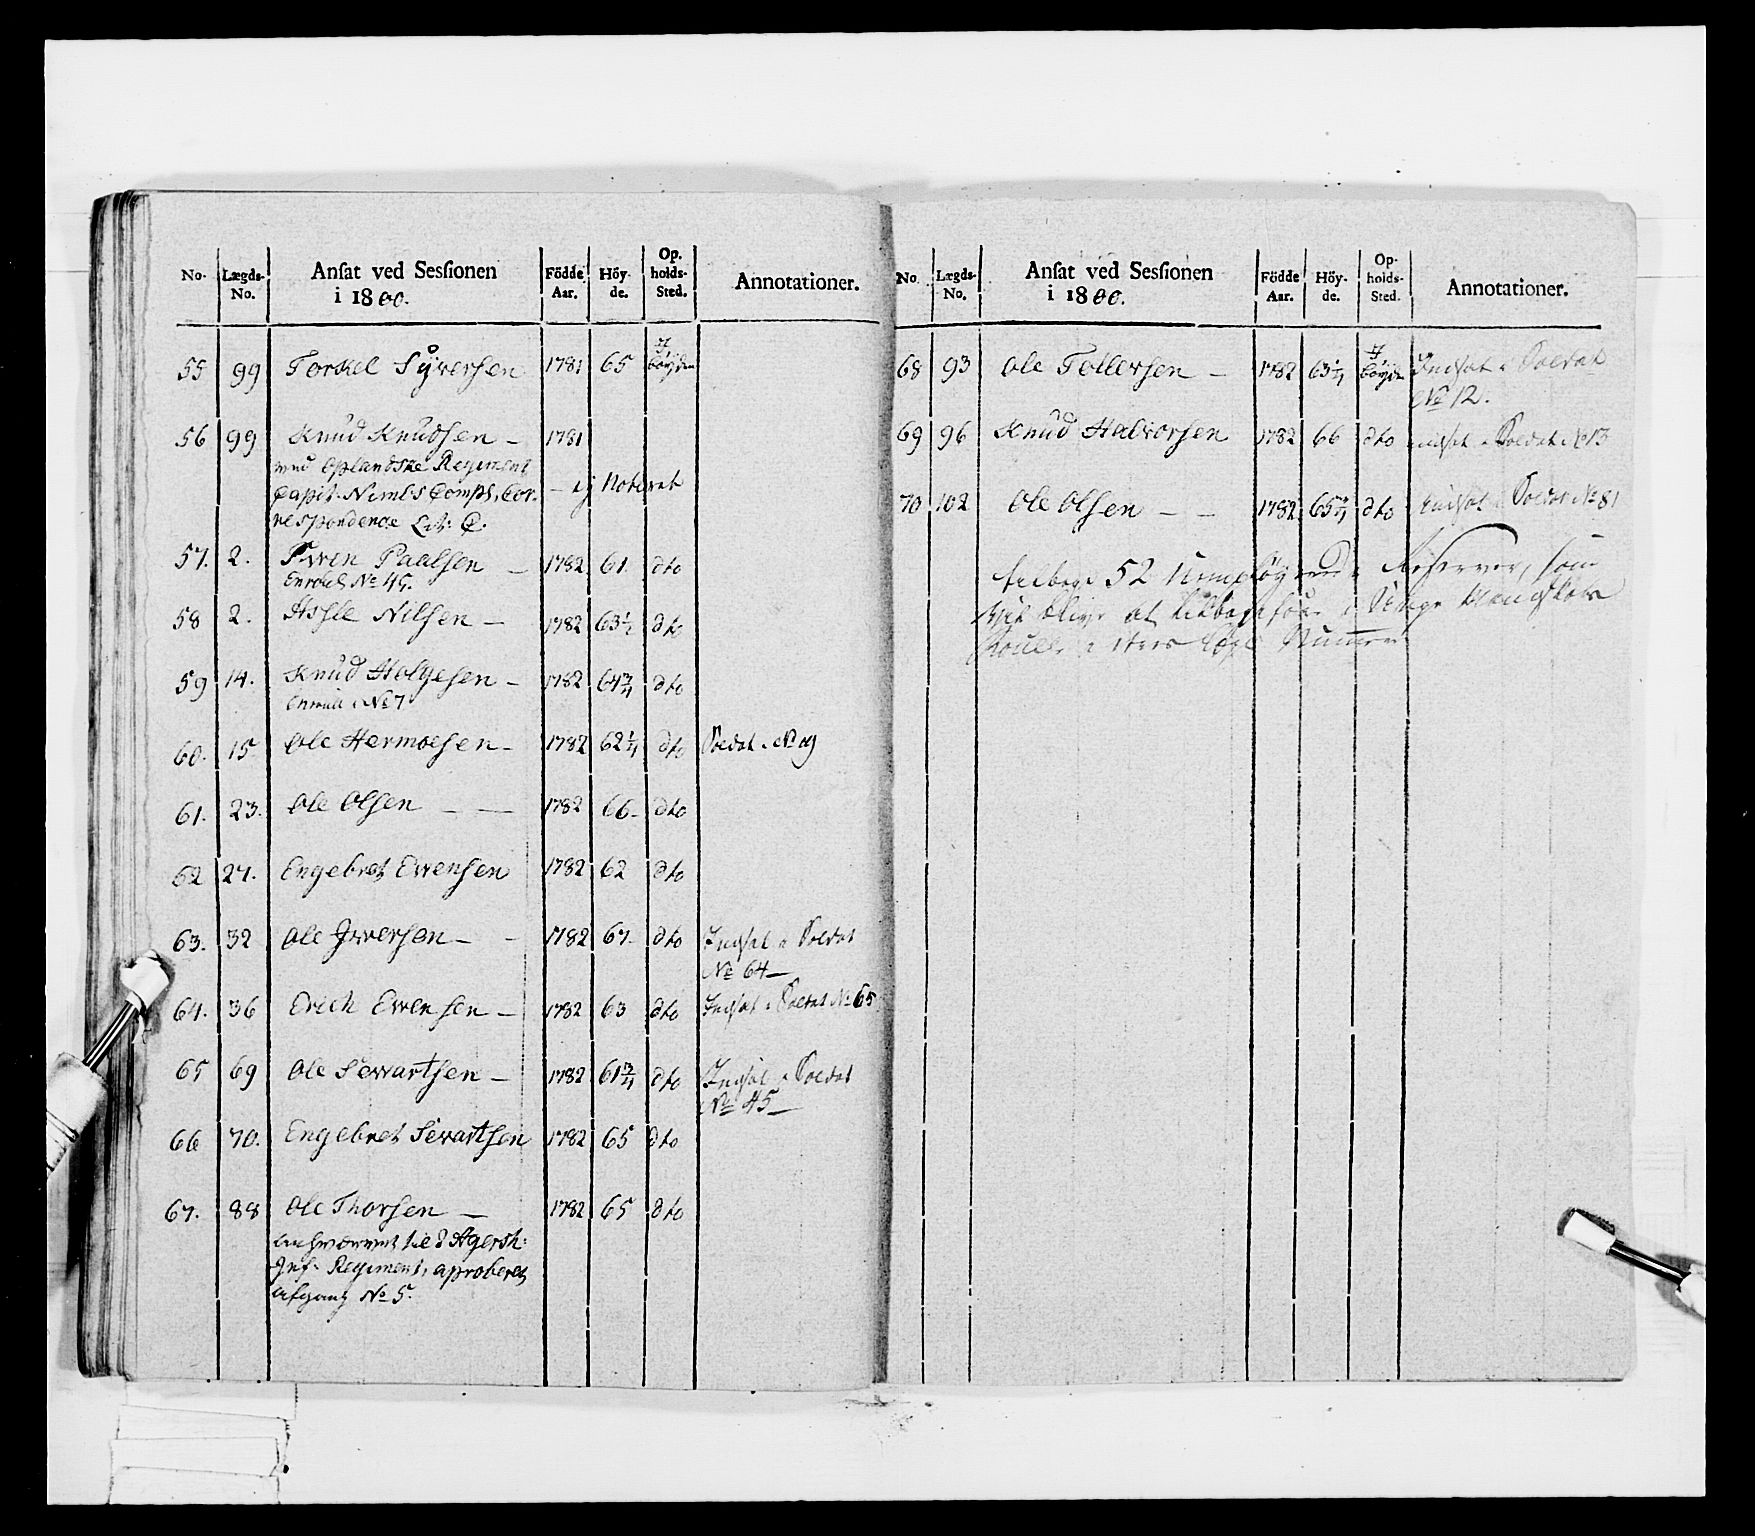 No. Lægds-No. Ansat ved Sessionen i 1800. Födde Aar. Höyde. Opholds-Sted. Annotationer.
55 99 Torkel Syversen 1781 65 I böyden
56 99 Knud Knudsen – 1781
med Oplandske Regiment
Capit. Nimbs Comp., Cor- – ej Noteret
respondence Lit: C.
57. 2. Swen Paalsen – 1782 61 dto
Enroul. No 45.
58 2. Assle Nilsen – 1782 63½ dto
59 14. Knud Holgesen – 1782 64¾ dto
Enroul. No 7
60. 15 Ole Hermoesen – 1782 62¼ dto Soldat No 9
61. 23. Ole Olsen – — 1782 66 – dto
62 27. Engebret Evensen 1782 62 dto
63. 32 Ole Iwersen – - 1782 67. dto Indsat i Soldat
No 64 –
64. 36 Erich Evensen – 1782 63 dto Indsat i Soldat No 65
65 69 Ole Sewartsen – 1782 61¾ dto Indsat i Soldat
No 45 –
66 70. Engebret Sewartsen 1782 65 dto
67. 88 Ole Thorsen – 1782 65 dto
ved Agersh:
Inf. Regiment, aproberet
afgang No 5.
No. Lægds-No. Ansat ved Sessionen i 1800. Födde Aar. Höyde. Opholds-Sted. Annotationer.
68 93 Ole Tollersen – 1782 63¼ I böyden Indsat i Soldat
No 12.
69 96 Knud Halvorsen 1782 66 dto indsat i Soldat No 13
70 102 Ole Olsen – – 1782 65¾ dto Indsat i Soldat No 81
52 Reserver, som
bliver at i Unge Mandskabs
Roulle Nummer